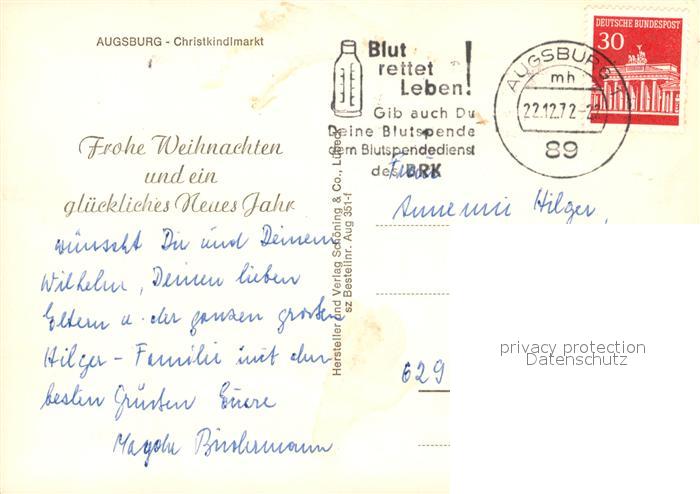 AUGSBURG - Christkindlmarkt
Frohe Weihnachten
und ein
glückliches Neues Jahr
wünscht Dir und Deinem
Wilhelm, Deinen lieben
Eltern u. der ganzen großen
Hilger - Familie mit den
besten Grüßen Eure
Magda Bindermann
Hersteller und Verlag Schöning & Co., Lübeck
sz Bestellnr. Aug 351-f
Blut
rettet
Leben!
Gib auch Du
Deine Blutspende
dem Blutspendedienst
des BRK
AUGSBURG 1
mh
22.12.72-2
89
DEUTSCHE BUNDESPOST
30
Frau
Annemie Hilger,
629
privacy protection
Datenschutz